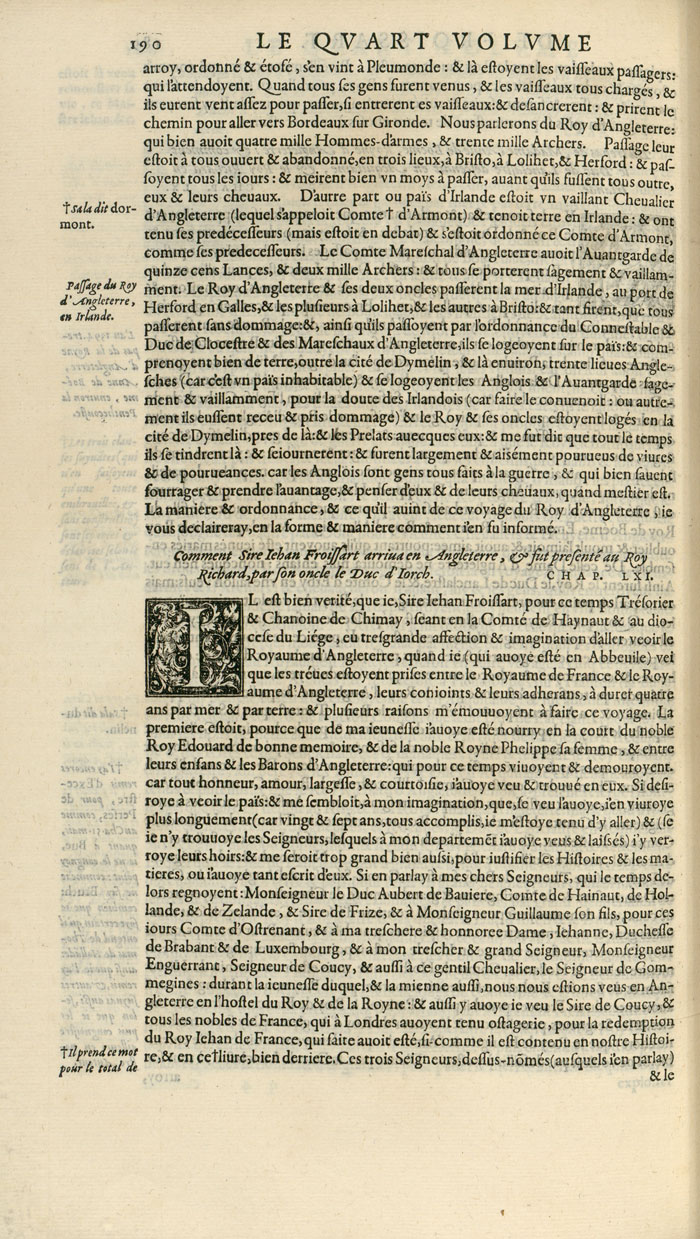 190 LE QVART VOLVME
arroy, ordonné & étofé, s'en vint à Pleumonde : & là eſtoyent les vaiſſeaux paſſagers:
qui l'attendoyent. Quand tous ſes gens furent venus, & les vaiſſeaux tous chargés, &
ils eurent vent aſſez pour paſſer, ſi entrerent es vaiſſeaux: & deſancrerent : & prirent le
chemin pour aller vers Bordeaux ſur Gironde. Nous parlerons du Roy d'Angleterre:
qui bien auoit quatre mille Hommes-d'armes, & trente mille Archers. Paſſage leur
eſtoit à tous ouuert & abandonné, en trois lieux, à Briſto, à Lolihet, & Herford : & paſ-
ſoyent tous les iours : & meirent bien vn moys à paſſer, auant qu'ils fuſſent tous outre,
eux & leurs cheuaux. D'aurre part ou païs d'Irlande eſtoit vn vaillant Cheualier
† sa la dit dor-
mont.
d'Angleterre (lequel s'appeloit Comte † d'Armont) & tenoit terre en Irlande : & ont
tenu ſes predéceſſeurs (mais eſtoit en debat) & s'eſtoit ordonné ce Comte d'Armont,
comme ſes predeceſſeurs. Le Comte Mareſchal d'Angleterre auoit l'Auantgarde de
quinze cens Lances, & deux mille Archers : & tous ſe porterent ſagement & vaillam-
Paſſage du Roy
d'Angleterre,
en Irlande.
ment. Le Roy d'Angleterre & ſes deux oncles paſſerent la mer d'Irlande, au port de
Herford en Galles, & les pluſieurs à Lolihet, & les autres à Briſto: & tant firent, que tous
paſſerent ſans dommage: &, ainſi qu'ils paſſoyent par l'ordonnance du Conneſtable &
Duc de Cloceſtre & des Mareſchaux d'Angleterre, ils ſe logeoyent ſur le païs: & com-
prenoyent bien de terre, outre la cité de Dymelin, & là enuiron, trente lieues Angle-
ſches (car c'eſt vn païs inhabitable) & ſe logeoyent les Anglois & l'Auantgarde ſage-
ment & vaillamment, pour la doute des Irlandois (car faire le conuenoit : ou autre-
ment ils euſſent receu & pris dommage) & le Roy & ſes oncles eſtoyent logés en la
cité de Dymelin, pres de là: & les Prelats auecques eux: & me fut dit que tout le temps
ils ſe tindrent là : & ſeiournerent: & furent largement & aisément pourueus de viures
& de pourueances. car les Anglois ſont gens tous faits à la guerre, & qui bien ſauent
fourrager & prendre l'auantage, & penſer d'eux & de leurs cheuaux, quand meſtier eſt.
La maniere & ordonnance, & ce qu'il auint de ce voyage du Roy d'Angleterre, ie
vous declaireray, en la forme & maniere comment i'en fu informé.
Comment Sire Iehan Froiſſart arriua en Angleterre, & fut preſenté au Roy
Richard, par ſon oncle le Duc d'Iorch. CHAP. LXI.
IL eſt bien verité, que ie, Sire Iehan Froiſſart, pour ce temps Tréſorier
& Chanoine de Chimay, ſeant en la Comté de Haynaut & au dio-
ceſe du Liége, eu treſgrande affection & imagination d'aller veoir le
Royaume d'Angleterre, quand ie (qui auoye eſté en Abbeuile) vei
que les tréues eſtoyent priſes entre le Royaume de France & le Roy-
aume d'Angleterre, leurs conioints & leurs adherans, à durer quatre
ans par mer & par terre : & pluſieurs raiſons m'émouuoyent à faire ce voyage. La
premiere eſtoit, pource que de ma ieuneſſe i'auoye eſté nourry en la court du noble
Roy Edouard de bonne memoire, & de la noble Royne Phelippe ſa femme, & entre
leurs enfans & les Barons d'Angleterre: qui pour ce temps viuoyent & demouroyent.
car tout honneur, amour, largeſſe, & courtoiſie, i'auoye veu & trouué en eux. Si deſi-
roye à veoir le païs: & me ſembloit, à mon imagination, que, ſe veu l'auoye, i'en viuroye
plus longuement (car vingt & ſept ans, tous accomplis, ie m'eſtoye tenu d'y aller) & (ſe
ie n'y trouuoye les Seigneurs, leſquels à mon departemēt i'auoye veus & laiſſés) i'y ver-
roye leurs hoirs: & me ſeroit trop grand bien auſsi, pour iuſtifier les Hiſtoires & les ma-
tieres, ou i'auoye tant eſcrit d'eux. Si en parlay à mes chers Seigneurs, qui le temps de-
lors regnoyent : Monſeigneur le Duc Aubert de Bauiere, Comte de Hainaut, de Hol-
lande, & de Zelande, & Sire de Frize, & à Monſeigneur Guillaume ſon fils, pour ces
iours Comte d'Oſtrenant, & à ma treſchere & honnoree Dame, Iehanne, Ducheſſe
de Brabant & de Luxembourg, & à mon treſcher & grand Seigneur, Monſeigneur
Enguerrant, Seigneur de Coucy, & auſſi à ce gentil Cheualier, le Seigneur de Gom-
megines : durant la ieuneſſe duquel, & la mienne auſſi, nous nous eſtions veus en An-
gleterre en l'hoſtel du Roy & de la Royne : & auſſi y auoye ie veu le Sire de Coucy, &
tous les nobles de France, qui à Londres auoyent tenu oſtagerie, pour la redemption
du Roy Iehan de France, qui faite auoit eſté, ſi-comme il eſt contenu en noſtre Hiſtoi-
† Il prend ce mot
pour le total de
re, & en ce † liure, bien derriere. Ces trois Seigneurs, deſſus-nōmés (auſquels i'en parlay)
& le